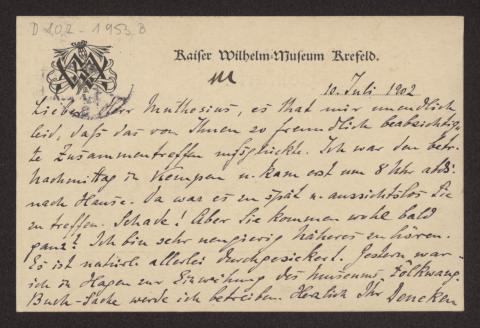 D 102 - 1953 B
Kaiser Wilhelm-Museum Krefeld.
M
10. Juli 1902
Lieber Herr Muthesius, es that mir unendlich
leid, daß das von Ihnen so freundlich beabsichtig-
te Zusammentreffen mißglückte. Ich war den betr.
Nachmittag in Kempen u. kam erst um 8 Uhr abds.
nach Hause. Da war es zu spät u. aussichtslos Sie
zu treffen. Schade! Aber Sie kommen wohl bald
ganz? Ich bin sehr neugierig näheres zu hören.
Es ist natürl. allerlei durchgesickert. Gestern war
ich in Hagen zur Einweihung des Museums Folkwang.
Buch-Sache werde ich betreiben. Herzlich Ihr Deneken